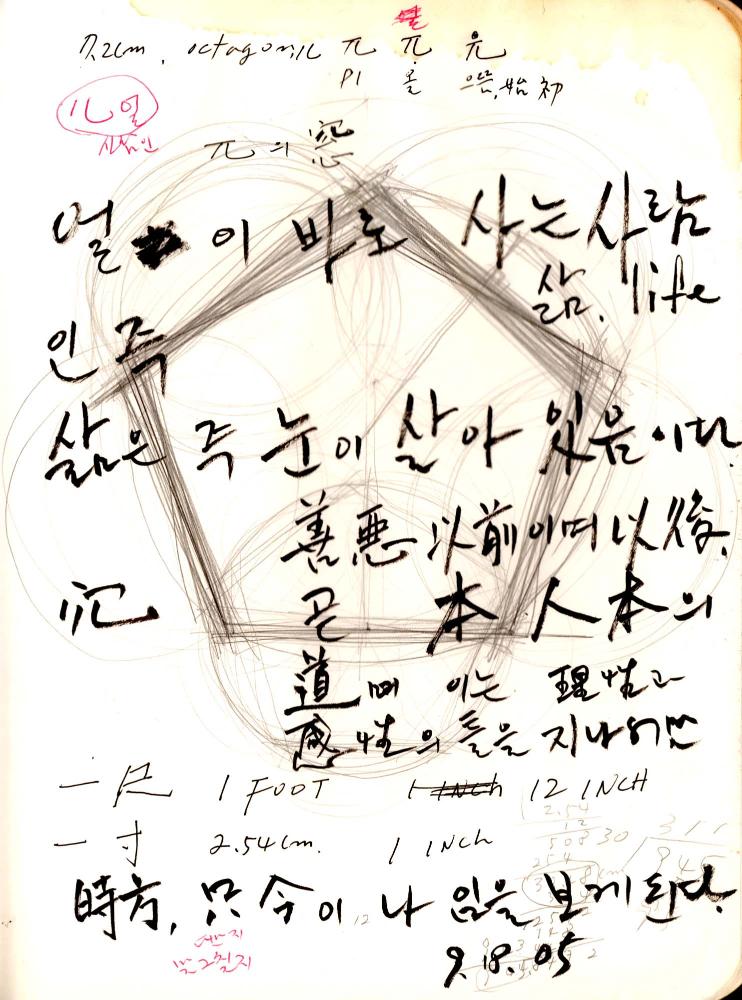 octagonic π π 元
PI 올 으뜸, 始初
얼
시삶인
π의 窓
얼 이 바로 사는사람
삶. life
인 즉
삶은 즉 눈이 살아 있음이다.
善惡 以前이며 以後.
곧 本 人本의
道며 이는 理性과
感性의 틀을 지나서만
一尺 1 FOOT 1 INCH 12 INCH
一寸 2.54cm. 1 INCH
時方, 只今이 나 임을 보게된다.
9.18.05